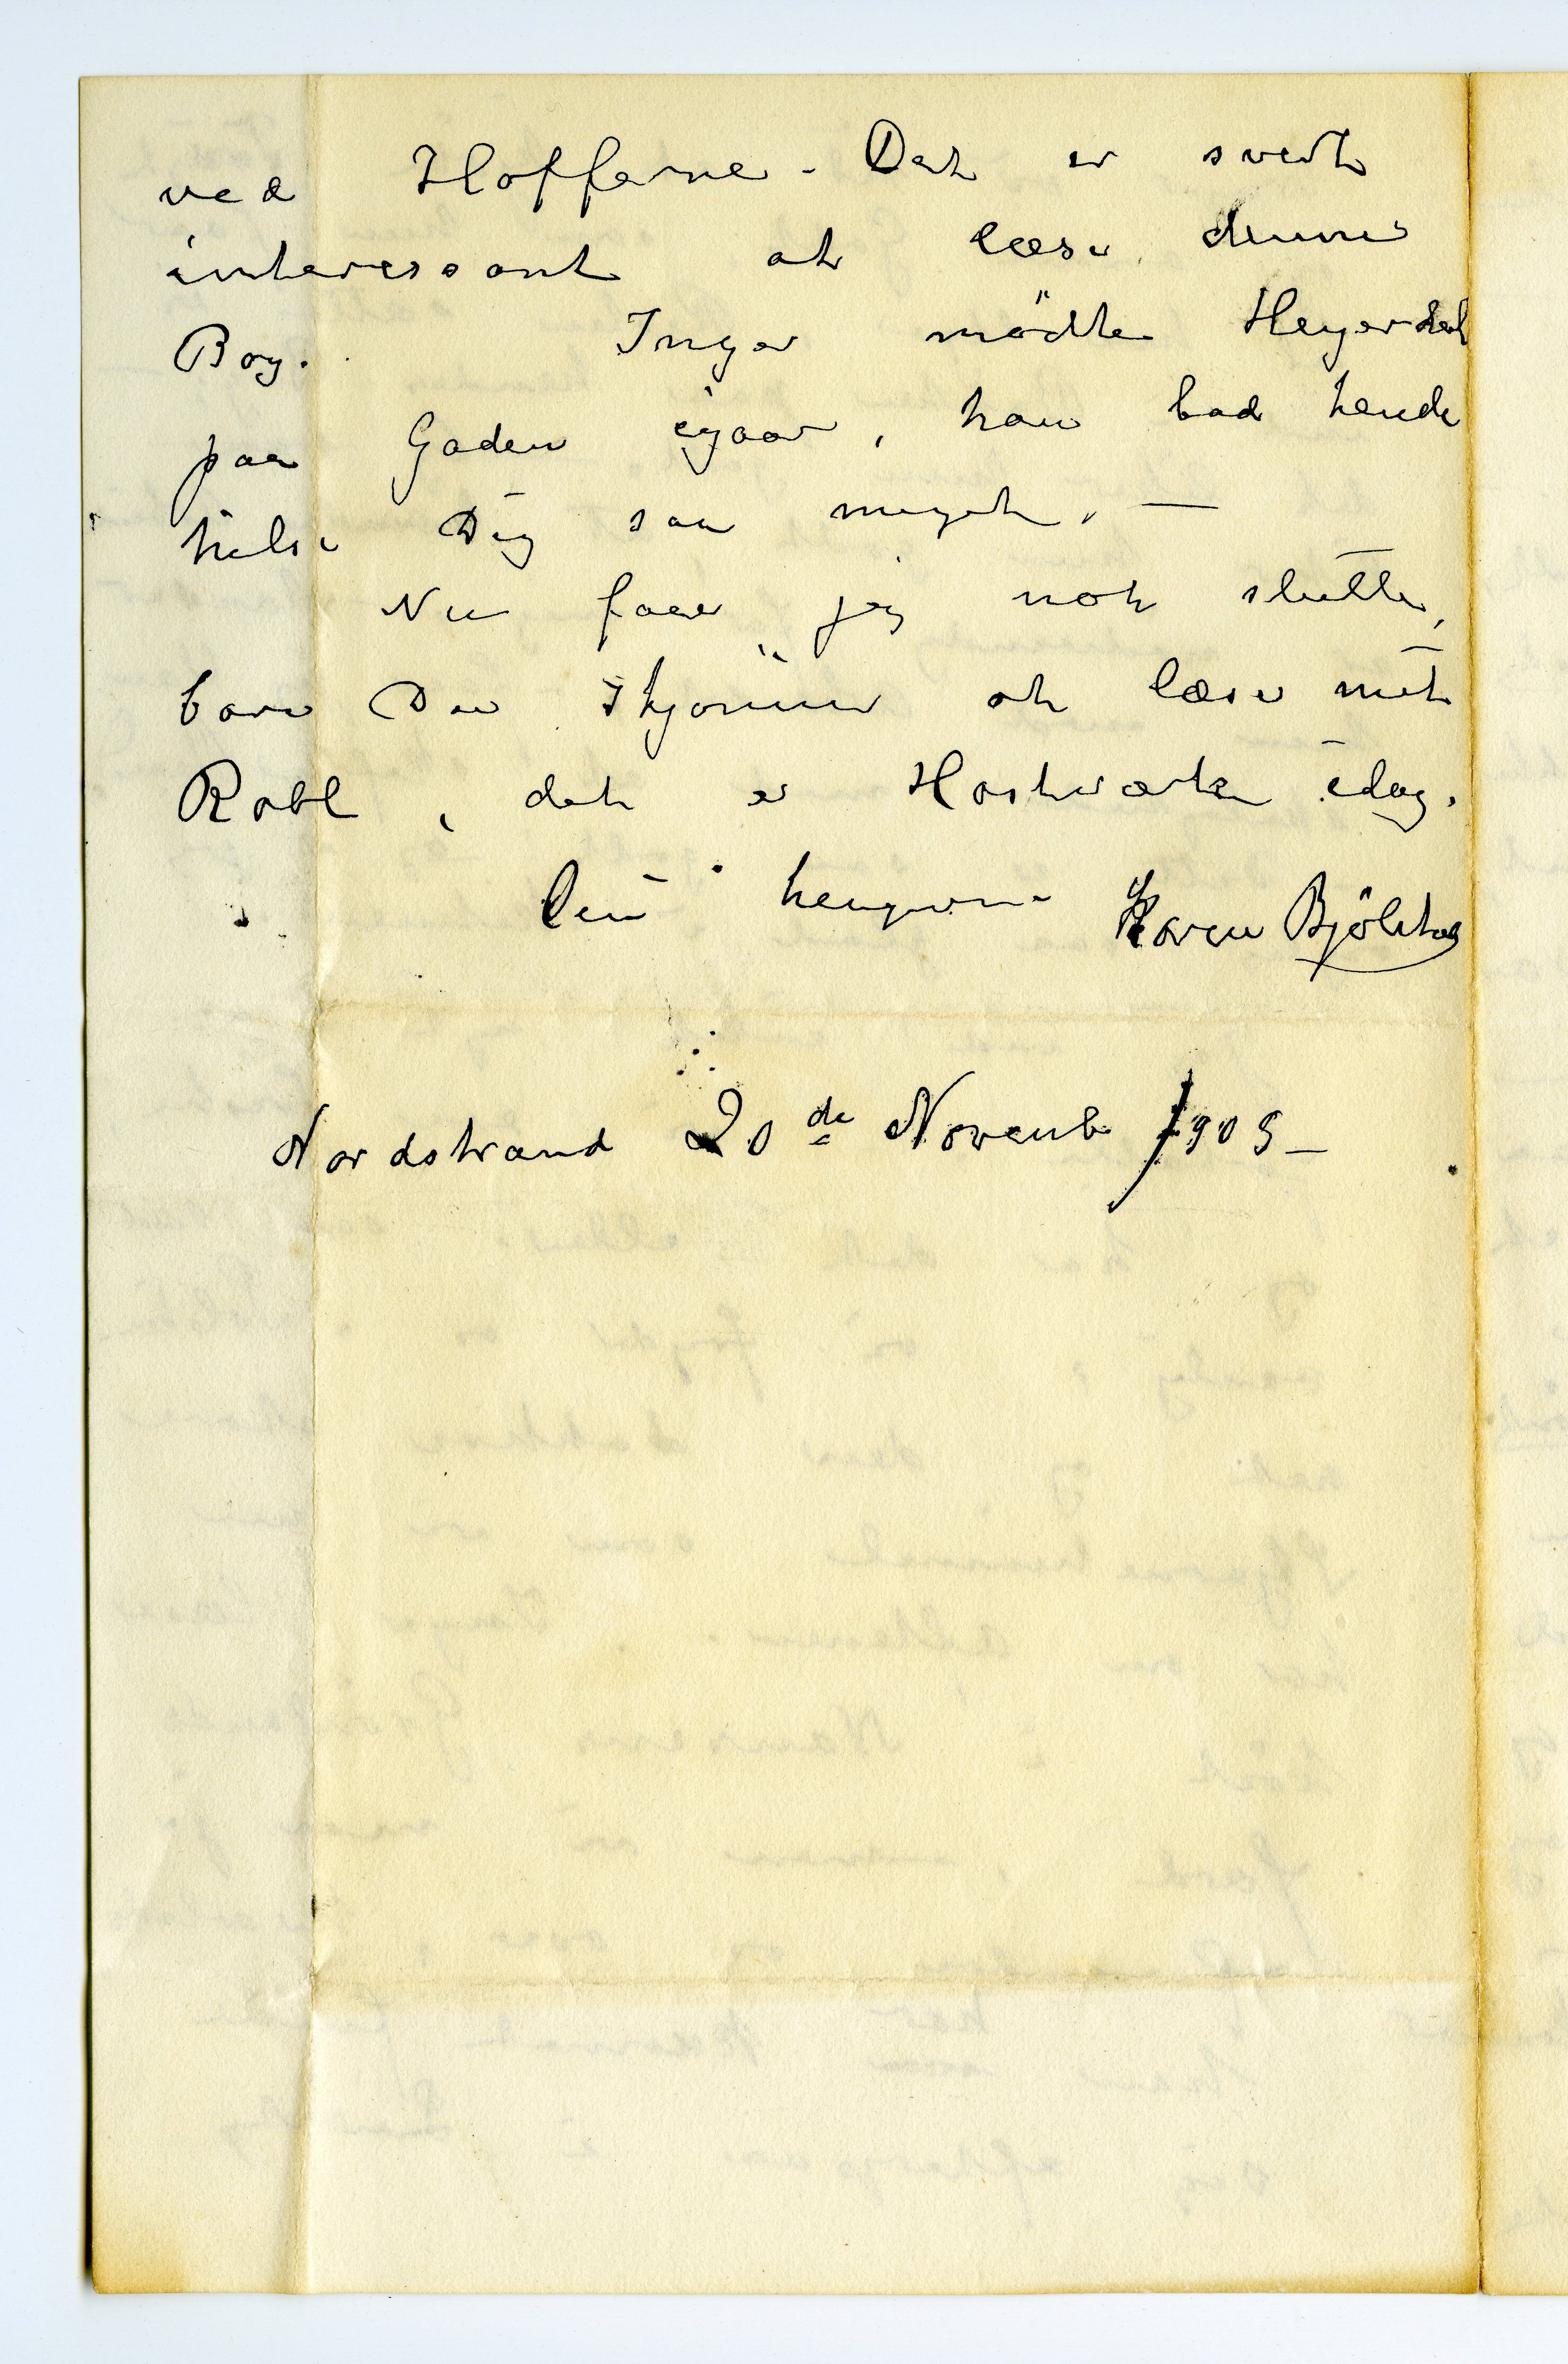 ved Hofferne. Det er svert
interessant at læse denne
Bog. Inger mødte Heyerdal
paa Gaden igaar, han bad hende
hilse Dig saa meget. —
Nu faar jeg nok slutte,
bare Du skjønner at læse mit
Rabl, det er Hastværk idag.
Din hengivne Karen Bjølstad
Nordstrand 20de Novemb 1909 —